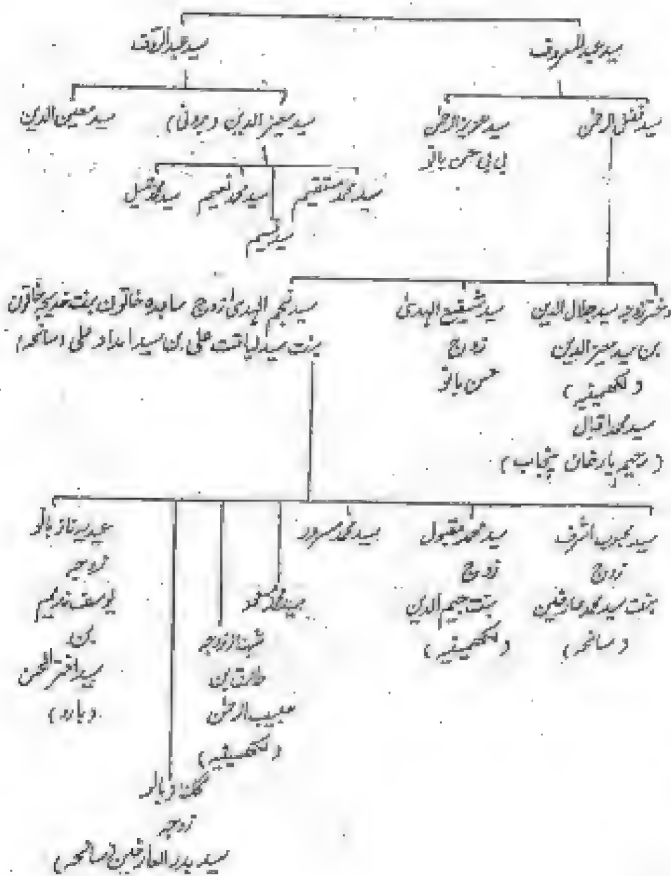 سید عبدالمعروف
سید عبدالرؤف
سید فضل الرحمٰن
سید عزیز الرحمٰن
بی بی حسن بانو
سید معیز الدین (بروئی)
سید معین الدین
سید محمد مستقیم
سید نسیم
سید محمد نعیم
سید محمد شمیل
دختر زوجہ سید جلال الدین
بن سید معیز الدین
(لکھمینیہ)
سید محمد اقبال
(رحیم یار خان پنجاب)
سید شفیع الہدیٰ
زوج
حسن بانو
سید نجم الہدیٰ زوج ساجدہ خاتون بنت خدیجہ خاتون
بنت سید لیاقت علی بن سید امداد علی (سانحہ)
سید محبوب اشرف
زوج
بنت سید محمد عارفین
(سانحہ)
سید محمد مقبول
زوج
بنت جسیم الدین
(لکھمینیہ)
سید محمد سرور
سید محمد
شہناز زوجہ
طارق بن
حبیب الرحمٰن
(لکھمینیہ)
بانو
زوجہ
سید بدر العارفین (سانحہ)
ناز بانو
زوجہ
یوسف ندیم
بن
سید اختر الحسن
(بارو)